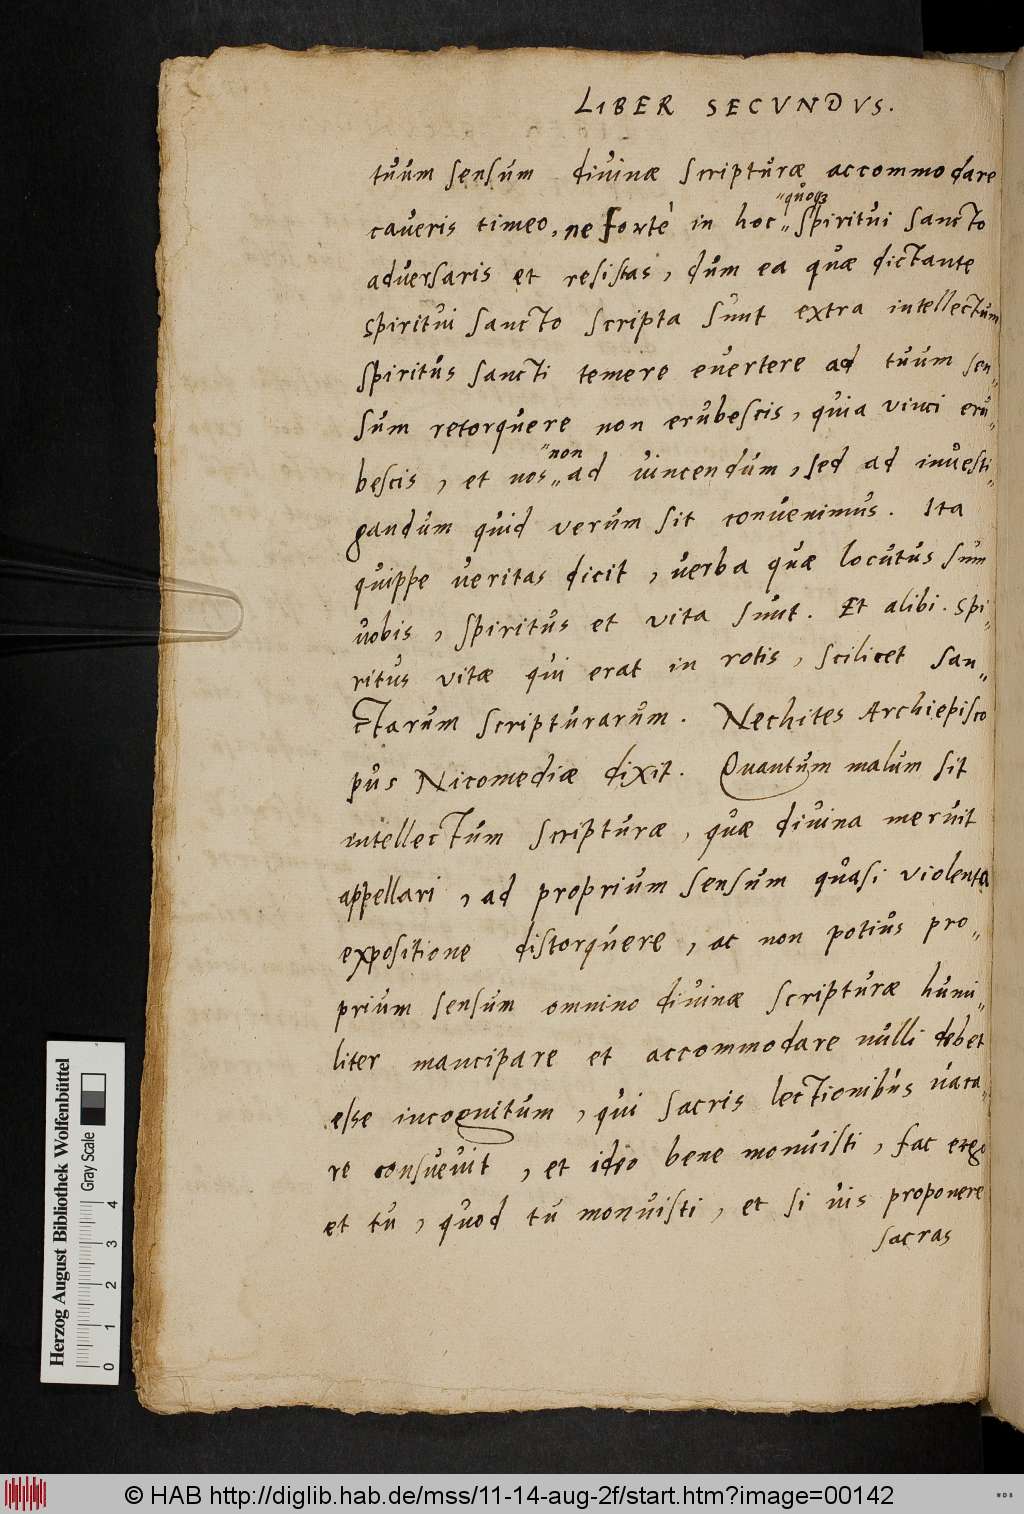 LIBER SECVNDVS.
tuum sensum divinæ scripturæ accommodare
"quoq3
caveris timeo, ne fortè in hoc „ spiritui sancto
adversaris et resistas, dum ea quæ dictante
spiritui sancto scripta sunt extra intellectum
spiritus sancti temere evertere ad tuum sen„
sum retorquere non erubescis, quia vinci eru„
"non
bescis, et nos „ ad vincendum, sed ad investi„
gandum quid verum sit convenimus. Ita
quippe veritas dicit, verba quæ locutus sum
vobis, spiritus et vita sunt. Et alibi. Spi„
ritus vitæ qui erat in rotis, scilicet san„
ctarum scripturarum. Nechites Archiepisco
pus Nicomediæ dixit. Quantum malum sit
intellectum scripturæ, quæ divina meruit
appellari, ad proprium sensum quasi violenta
expositione distorquere, ac non potius pro„
prium sensum omnino divinæ scripturæ humi„
liter mancipare et accommodare nulli debet
esse incognitum, qui sacris lectionibus vaca„
re consuevit, et ideo bene monuisti, fac ergo
et tu, quod tu monuisti, et si vis proponere
sacras
Herzog August Bibliothek Wolfenbüttel
Gray Scale
0 1 2 3 4
© HAB http://diglib.hab.de/mss/11-14-aug-2f/start.htm?image=00142